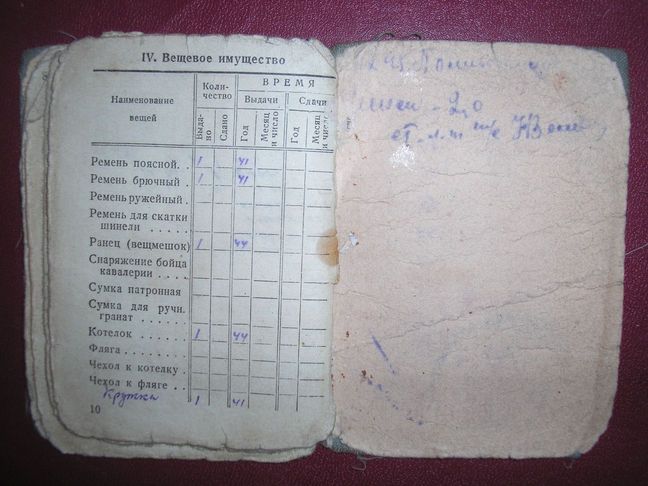 IV. Вещевое имущество
Наименование вещей
Коли-
чество
ВРЕМЯ
Выдачи
Сдачи
Выда-
но
Сдано
Год
Месяц
и число
Год
Месяц
и число
Ремень поясной. . 1 41
Ремень брючный . 1 41
Ремень ружейный.
Ремень для скатки
шинели . . . . .
Ранец (вещмешок) 1 44
Снаряжение бойца
кавалерии . . . .
Сумка патронная
Сумка для ручн.
гранат . . . . . .
Котелок . . . . . . 1 44
Фляга . . . . . . .
Чехол к котелку .
Чехол к фляге . .
Кружка 1 41
10